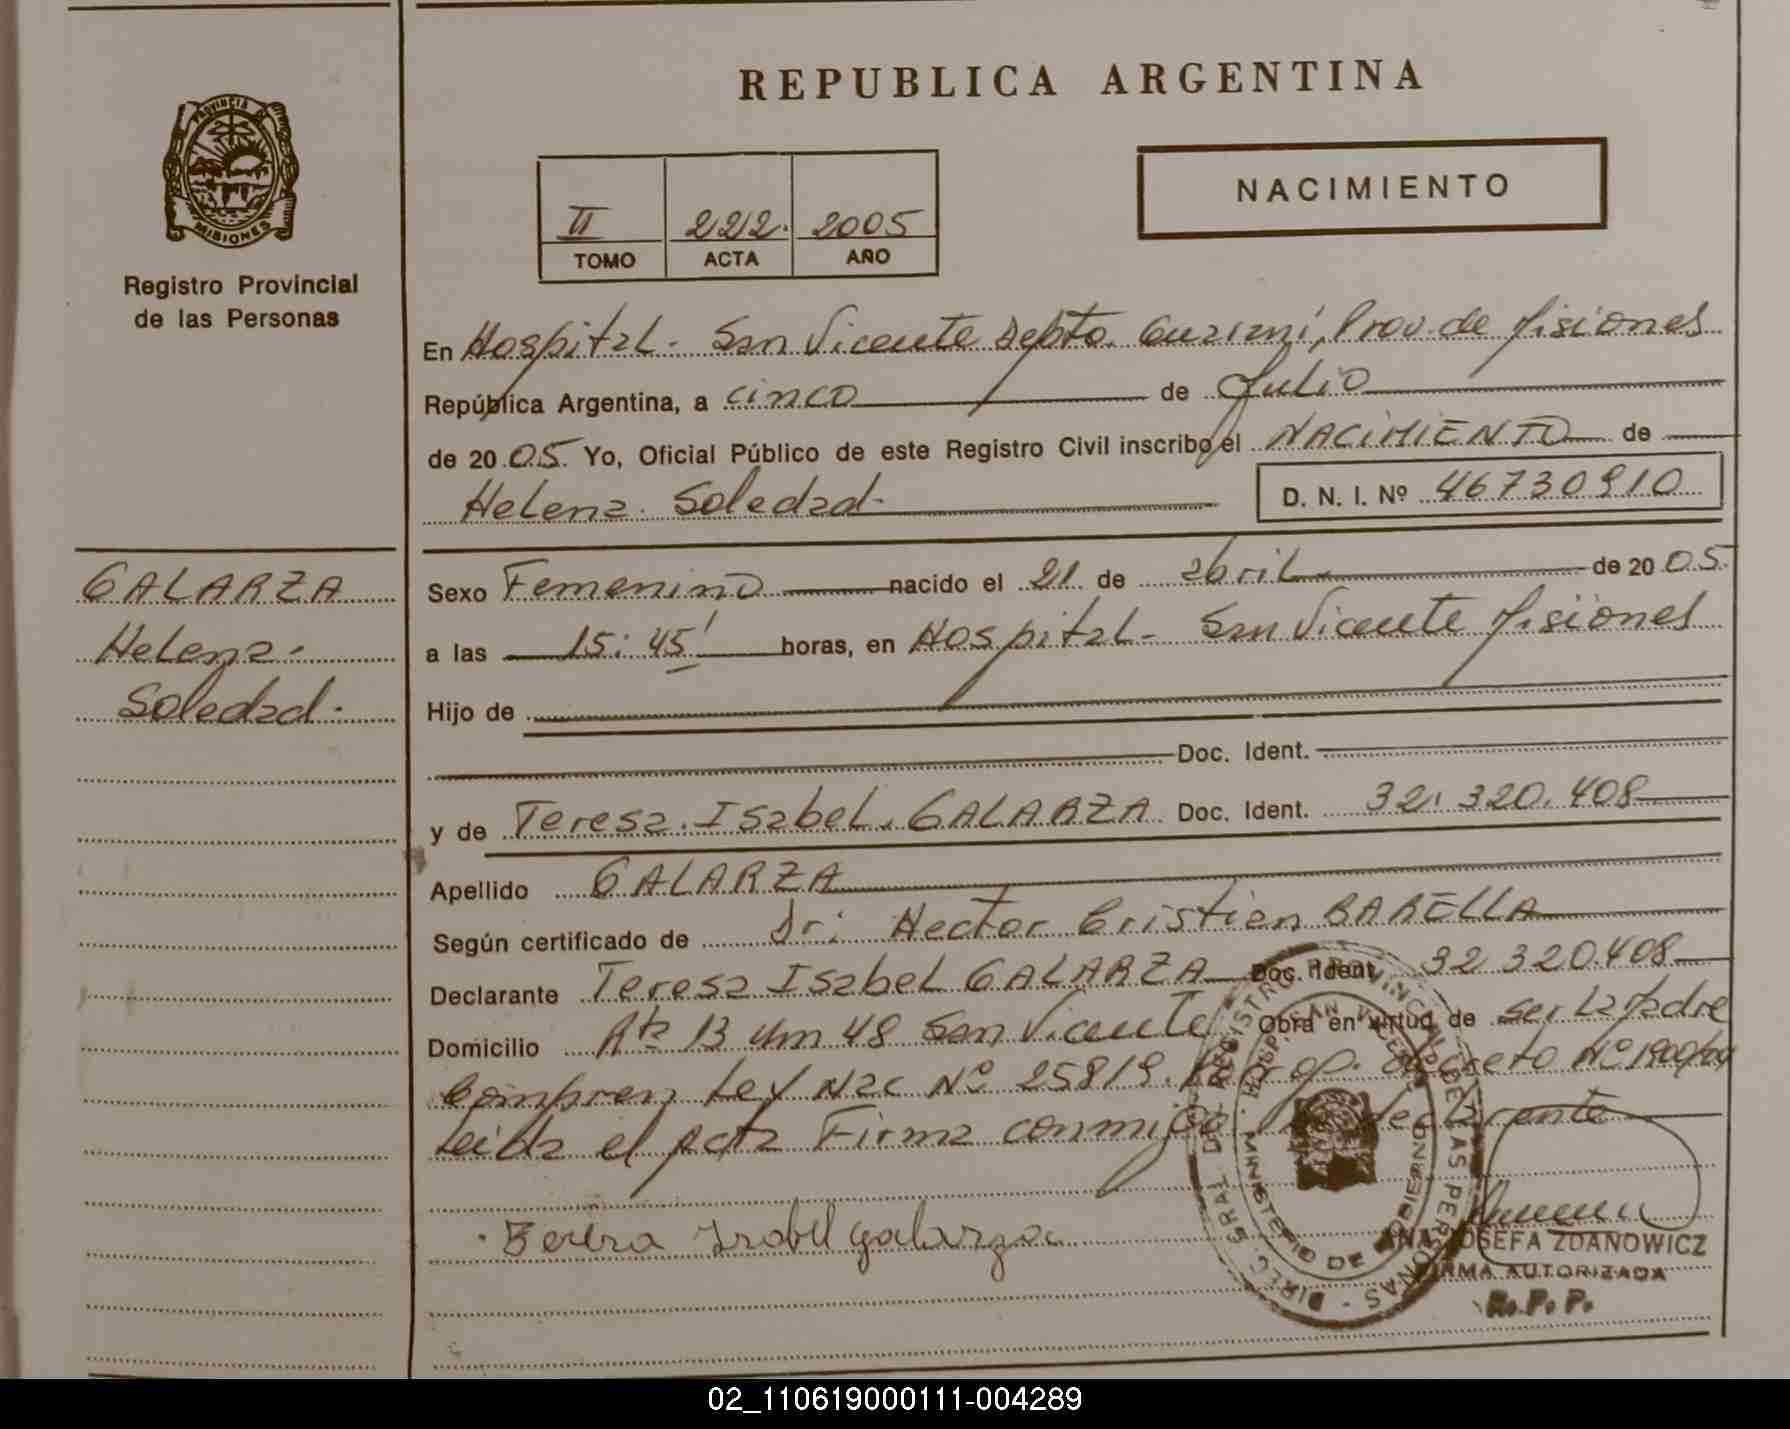 REPUBLICA ARGENTINA
PROVINCIA DE MISIONES
Registro Provincial
de las Personas
NACIMIENTO
II 222. 2005
TOMO ACTA AÑO
En Hospital. San Vicente Depto. Guaraní, Prov. de Misiones
República Argentina, a cinco de Julio
de 2005. Yo, Oficial Público de este Registro Civil inscribo el NACIMIENTO de
Helena Soledad.
D. N. I. Nº 46730910
GALARZA
Helena.
Soledad.
Sexo Femenino nacido el 21 de abril de 2005
a las 15:45' horas, en Hospital. San Vicente Misiones
Hijo de
Doc. Ident.
y de Teresa Isabel GALARZA Doc. Ident. 32.320.408
Apellido GALARZA
Según certificado de Dr: Hector Cristien BARELLA
Declarante Teresa Isabel GALARZA Doc. Ident. 32 320.408
Domicilio Rta 13 Km 48 San Vicente Obra en virtud de ser La Madre
Ley Nac Nº 25819. decreto Nº
Leida el Acta Firma conmigo declarante
Teresa Isabel Galarza
DIREC. GRAL DEL REGISTRO PROVINCIAL DE LAS PERSONAS
HOSP. SAN VICENTE
MINISTERIO DE GOBIERNO
ANA JOSEFA ZDANOWICZ
FIRMA AUTORIZADA
R. P. P.
02_110619000111-004289